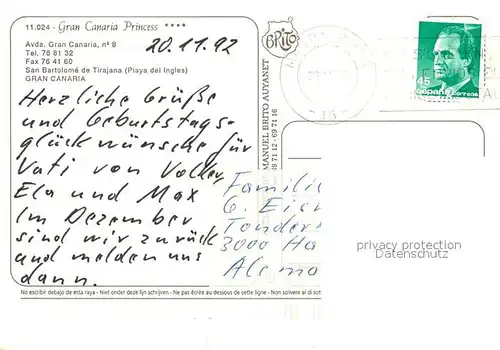 11.024 - Gran Canaria Princess ****
Avda. Gran Canaria, nº 8
Tel. 76 81 32
Fax 76 41 60
San Bartolomé de Tirajana (Playa del Ingles)
GRAN CANARIA
20.11.92
Herzliche Grüße
und Geburtstags-
glückwünsche für
Vati von Volker,
Ela und Max
Im Dezember
sind wir zurück
und melden uns
dann.
BRITO
MANUEL BRITO AUYANET
69 71 12 - 69 71 16
45
España correos
Famili
G.
Tonder
3000 Ha
Alema
privacy protection
Datenschutz
No escribir debajo de esta raya - Niet onder deze lijn schrijven - Ne pas écrire au dessous de cette ligne - Non scrivere al di sot